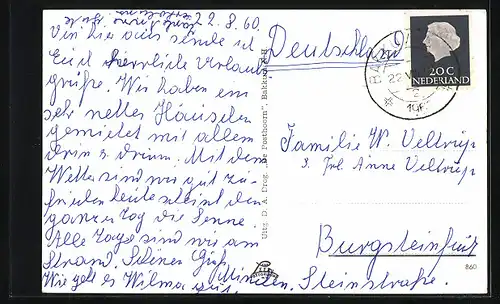 22.8.60.
Von hier aus sende ich
Euch herrliche Urlaubs
grüße. Wir haben ein
sehr nettes Häuschen
gemietet mit allem
drin u. drum. Mit dem
Wetter sind wir gut zu-
frieden heute scheint den
ganzen Tag die Sonne.
Alle Tage sind wir am
Strand.
Wie geht es Wilma
Deutschland
20 C
NEDERLAND
22
Familie W. Veltrup
z. Frl. Anne Veltrup
Burgsteinfurt
Steinstraße.
Uitg. D. A. Drog. „De Posthoorn”, Bakkum N.H.
860